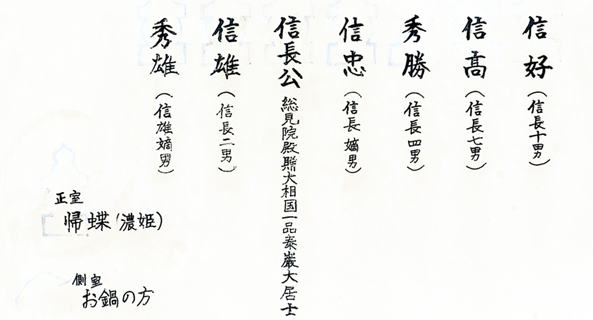 信好(信長十男)
信高(信長七男)
秀勝(信長四男)
信忠(信長嫡男)
信長公 総見院殿贈大相国一品泰巌大居士
信雄(信長二男)
秀雄(信雄嫡男)
正室
帰蝶(濃姫)
側室
お鍋の方